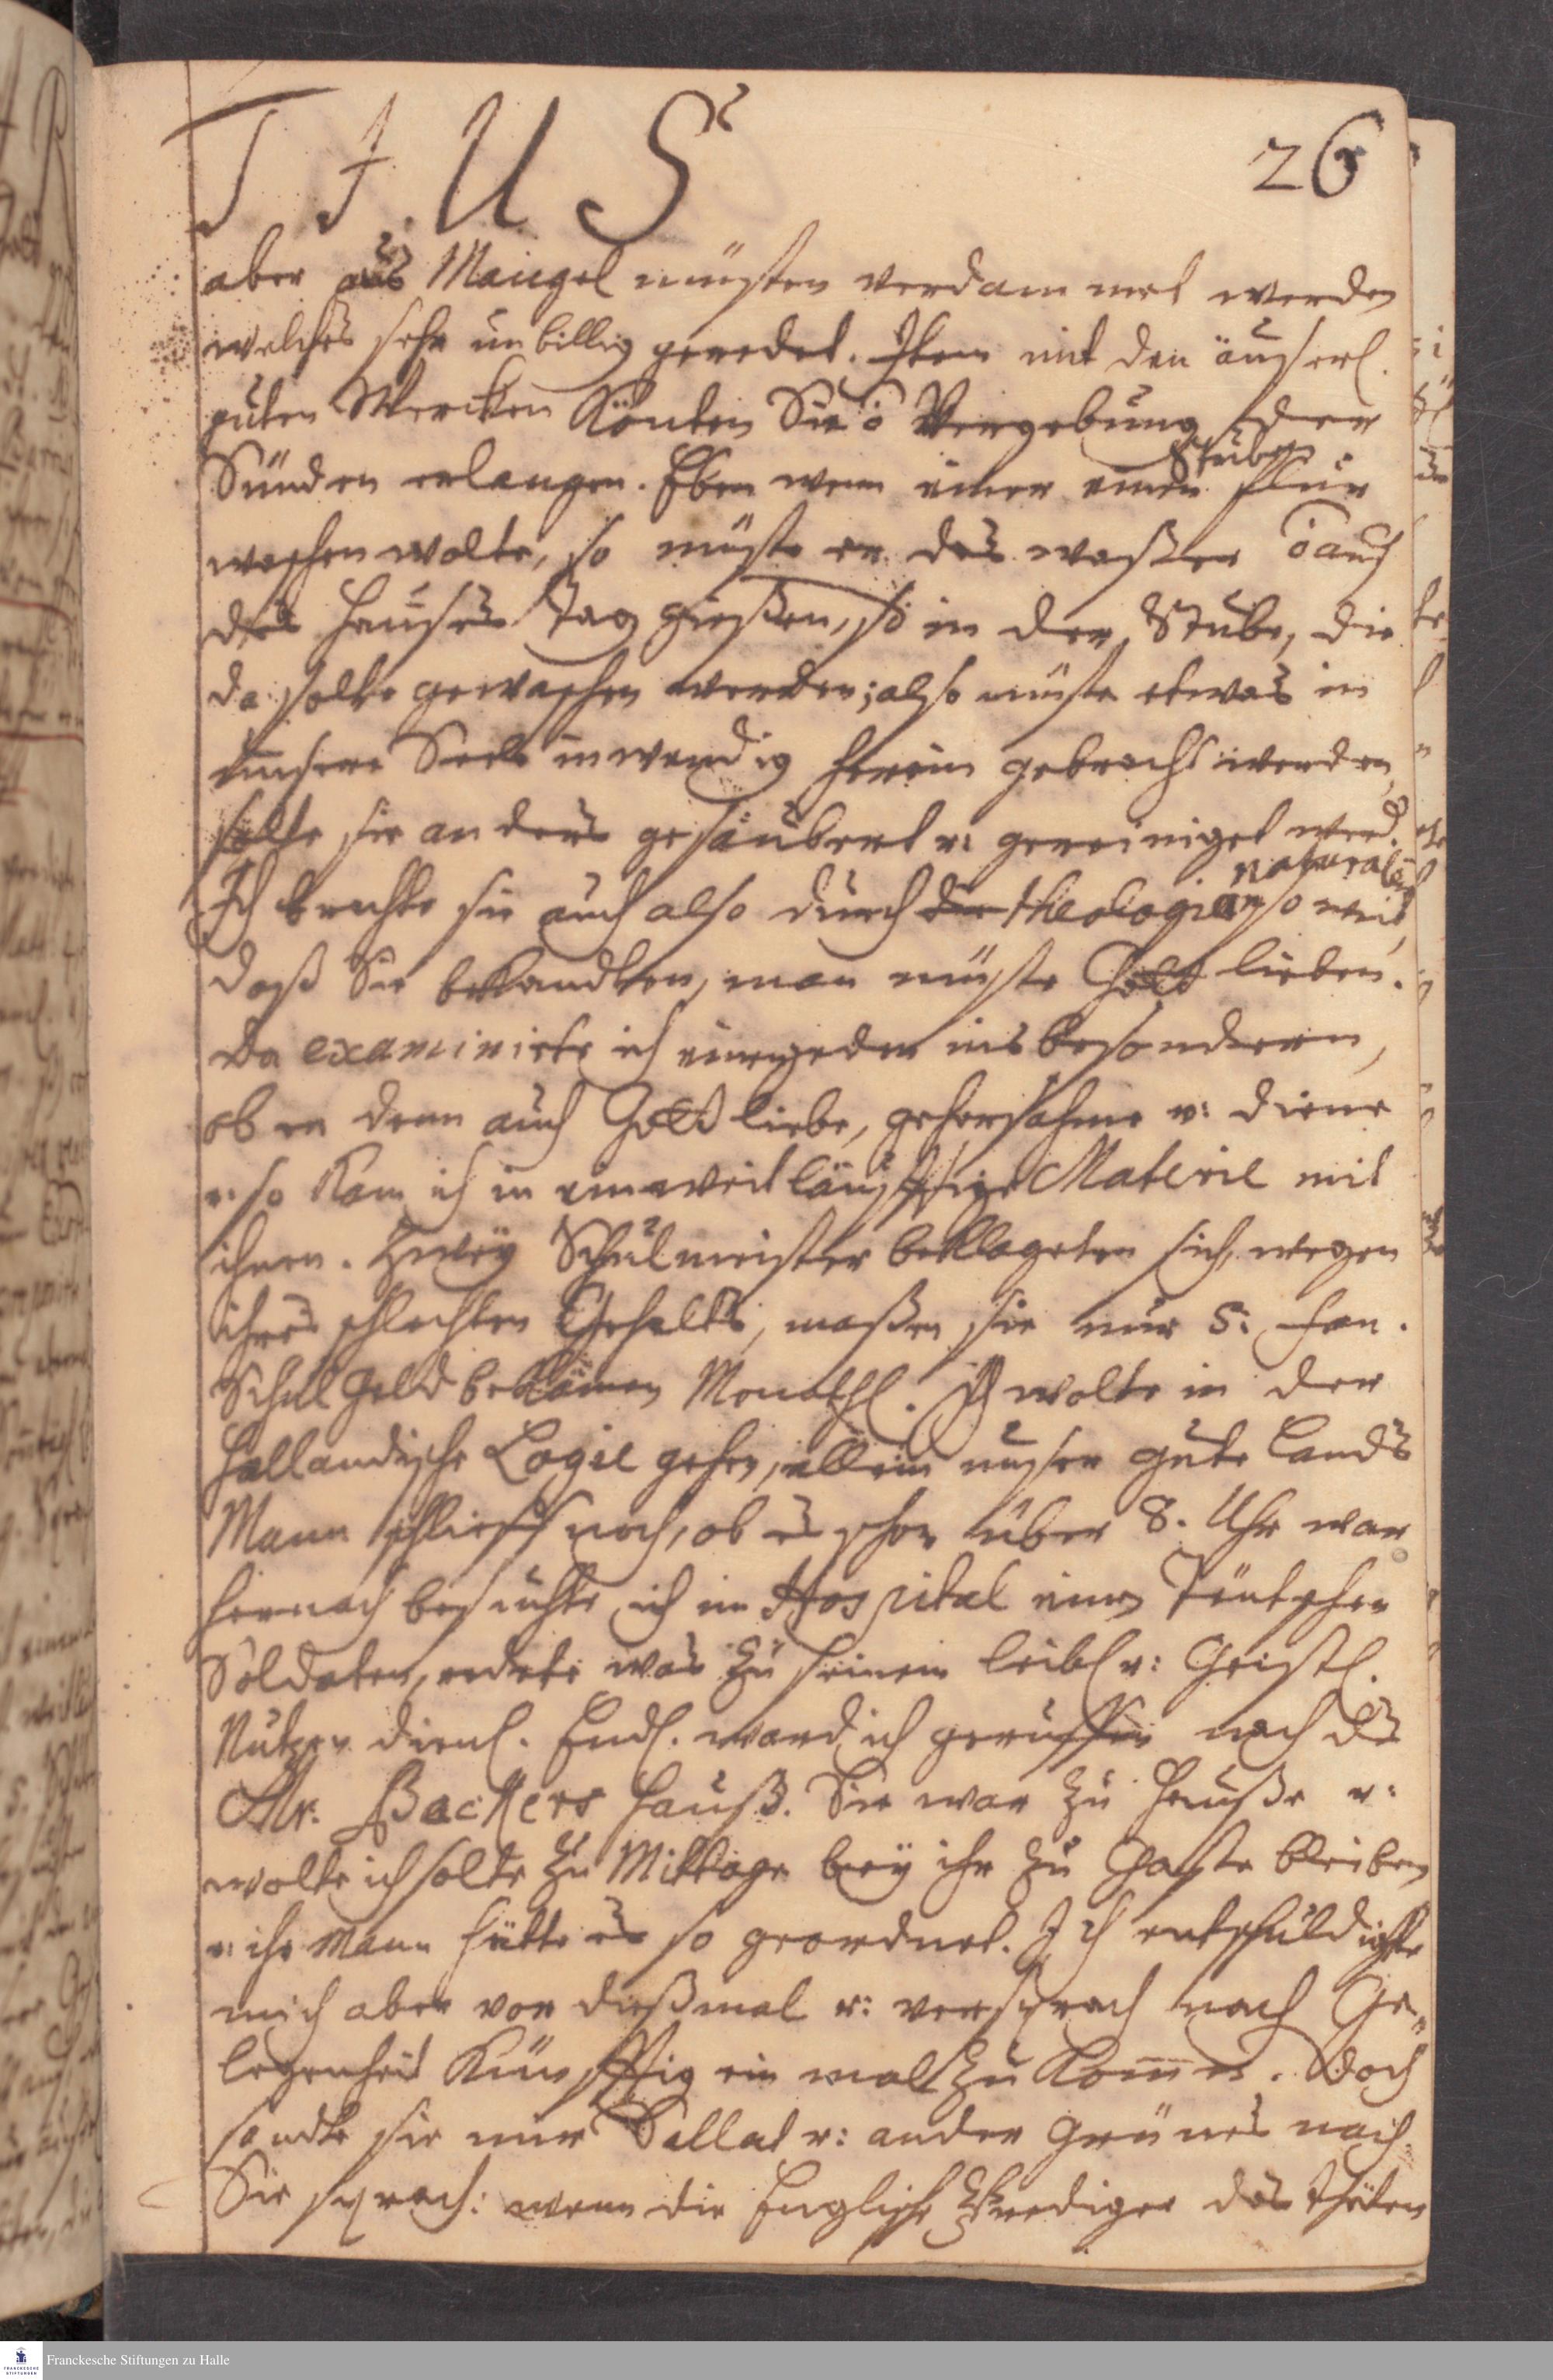 T I U S
26
aber aus Mangel müsten verdammet werden
welches sehr unbillig geredet. Item mit den äuserl.
guten Wercken Könten Sie ō Vergebung der
Sünden erlangen. Eben wenn einer einen Stuben
flur
waschen wolte, so müste er das waßer ō auf
des Hauses Dach gießen, so in der Stube, die
da solte gewaschen werden; also müste etwas in
unsere Seele inwendig herein gebracht werden,
solte sie anders gesäubert u: gereiniget werd.
Ich brachte sie auch also durch die theologiam naturalem so weit,
daß Sie bekandten, man müste Gott lieben.
Da examinirte ich einen jeden ins besondern,
ob er denn auch Gott liebe, gehorsahme u: diene
u: so kam ich in eine weitläufftige Materie mit
ihnen. Zwey Schulmeister beklageten sich, wegen
ihres schlechten Gehalts, maßen sie nur 5: fan.
Schul Geld bekämen Monathl. Ich wolte in der
Hollandische Logie gehen, allein unser gute Lands
Mann schlieff noch, ob es schon über 8. Uhr war
hernach besuchte ich im Hospital einen Teutschen
Soldaten, redete was zu seinem leibl. u: Geistl.
Nutzen dienl. Endl. ward ich geruffen nach des
Mr. Backers Hauß. Sie war zu Hauße u:
wolte ich solte zu Mittage bey ihr zu Gaste bleiben
u: ihr Mann hätte es so geordnet. Ich entschuldigte
mich aber vor dießmal u: versprach nach Ge-
legenheit Künfftig ein mal zu kom̄en. Doch
sandte sie mir Sallat u: ander Grünes nach.
Sie sprach: wenn die Englische Prediger das thäten
Franckesche Stiftungen zu Halle